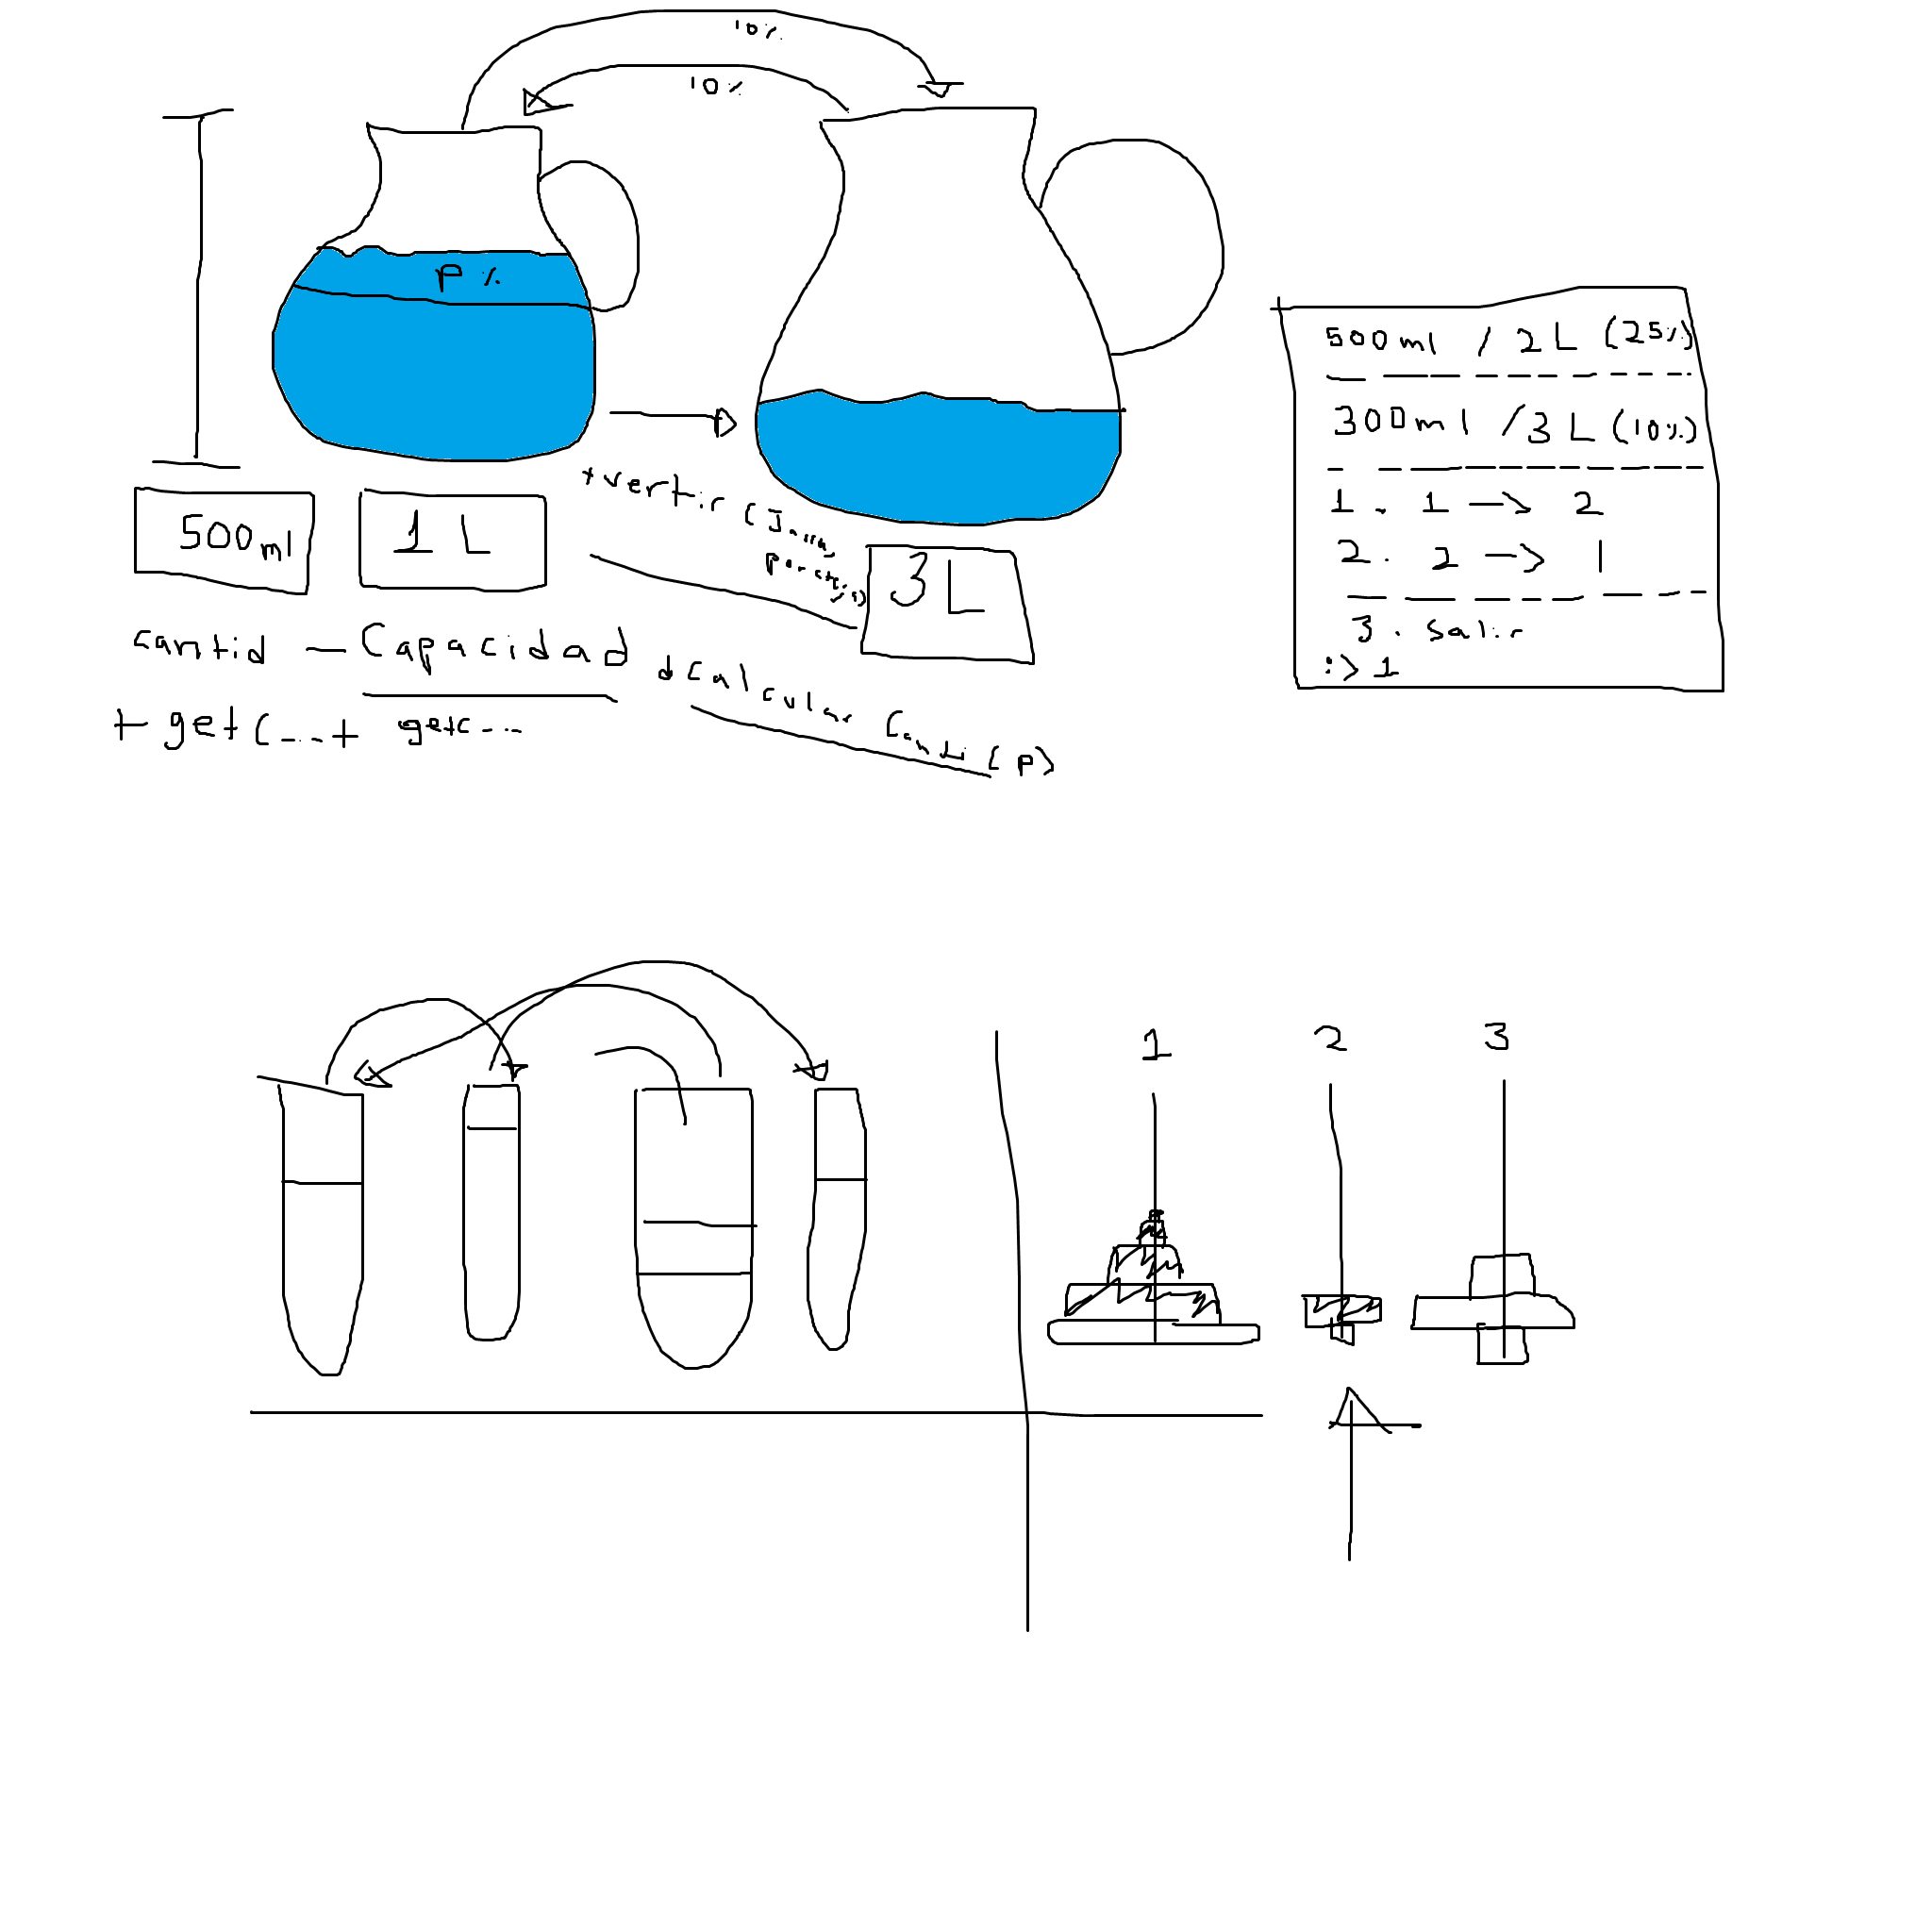 10%
10%
P%
500ml
1 L
3 L
+vertir (Jarra,
cantid - Capacidad
+ get(...+ getc...
+Calcular Canti(P)
500ml / 2L (25%)
300ml / 3L (10%)
1. 1 -> 2
2. 2 -> 1
3. Salir
:> 1
1 2 3